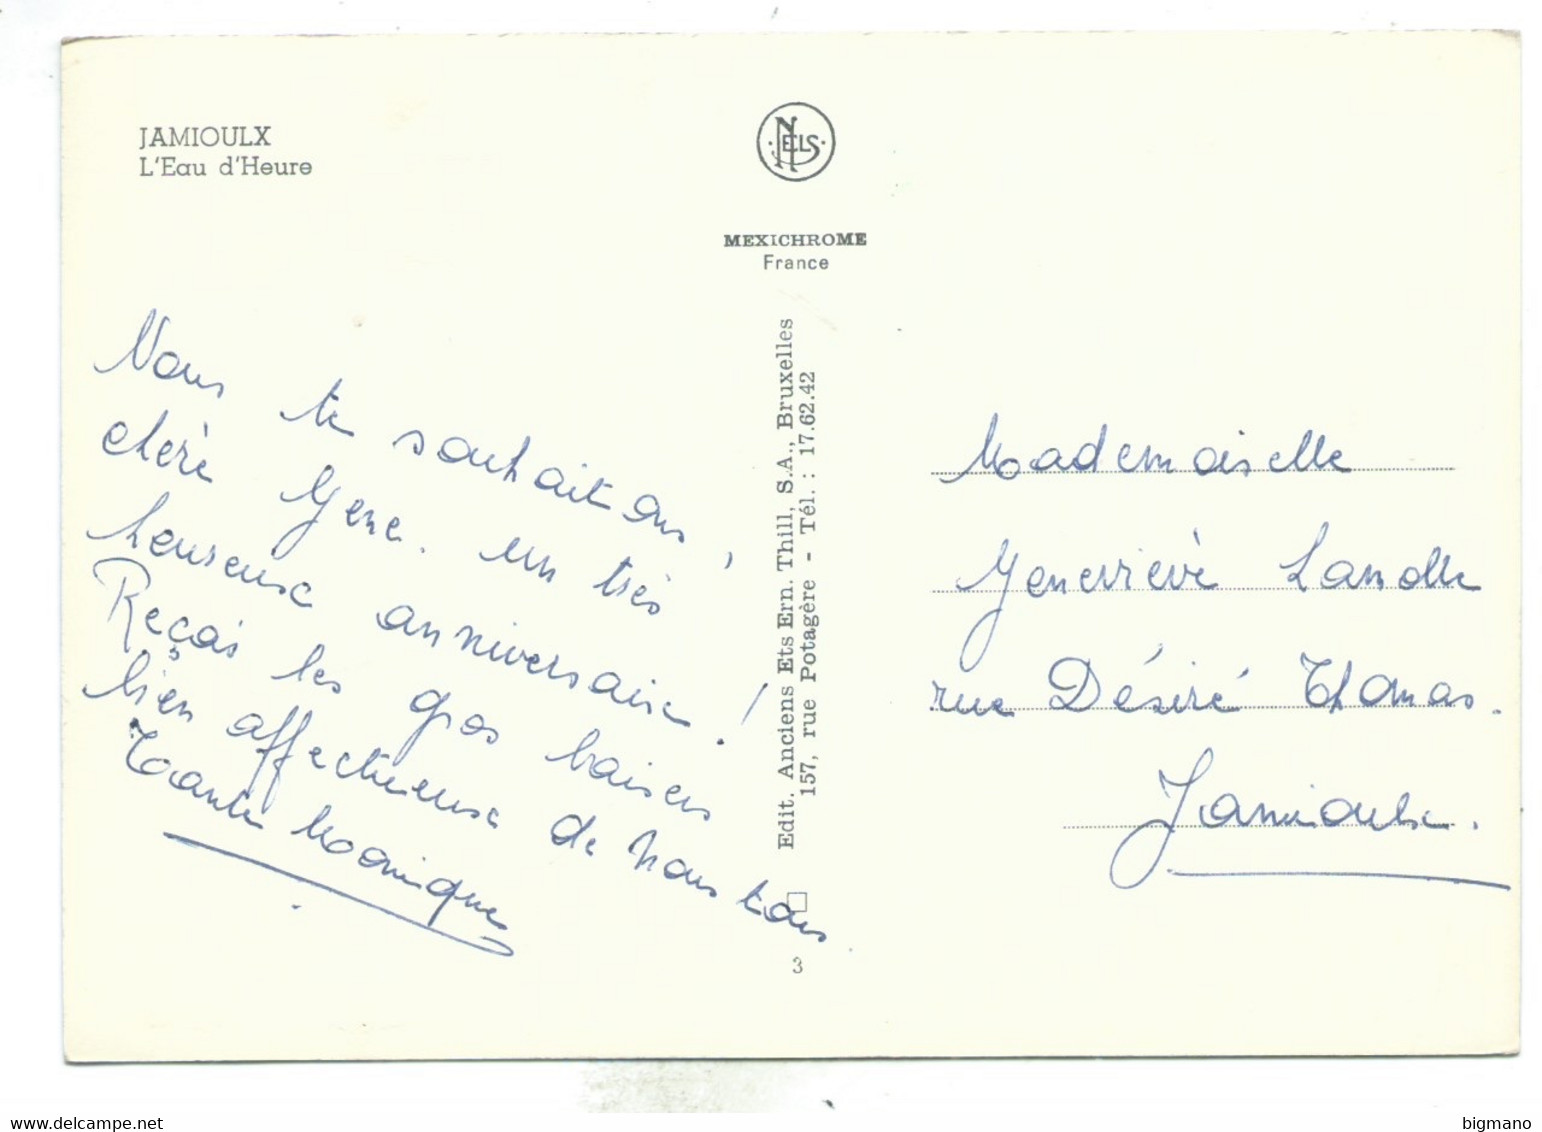 JAMIOULX
L'Eau d'Heure
NELS
MEXICHROME
France
Edit. Anciens Ets Ern. Thill, S.A., Bruxelles
157, rue Potagère - Tél. : 17.62.42
3
Nous te souhaitons,
chère Gene. un très
heureux anniversaire !
Reçois les gros baisers
bien affectueux de nous tous
Tante Monique
Mademoiselle
Geneviève
rue Désiré Thomas.
Jamioulx.
bigmano